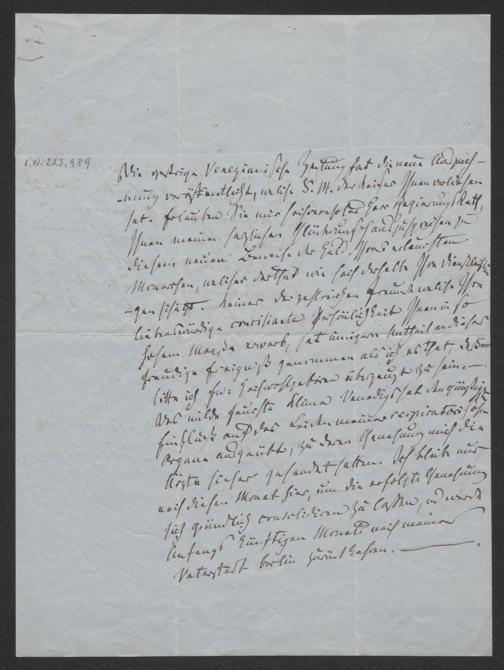 I.N. 213.989
Die gestrige Venezianische Zeitung hat die neue Auszeich-
-nung veröffentlicht, welche S. M. der Kaiser Ihnen verliehen
hat. Erlauben Sie mir hochverehrter Herr Regierungsrath,
Ihnen meinen herzlichen Glückwunsch auszusprechen zu
diesem neuen Beweise der Huld Ihres erlauchten
Monarchen, welcher darthut wie hoch derselbe Ihre Dienstleistun-
-gen schätzt. Keiner der zahlreichen Freunde welche Ihre
liebenswürdige Persönlichkeit Ihnen in so
hohem Maaße erwarb, hat innigern Antheil an diesem
freudigen Ereigniß genommen als ich es that,
bitte ich Ew. Hochwohlgeboren überzeugt zu sein. –
Das milde feuchte Klima Venedigs hat den günstigsten
Einfluß auf das Leiden meiner respiratorischen
Organe ausgeübt, zu deren Genesung mich die
Ärzte hieher gesendet hatten. Ich bleibe nur
noch diesen Monat hier, um die erfolgte Genesung
sich gründlich consolidiren zu lassen, und werde
Anfangs künftigen Monats nach meiner
Vaterstadt Berlin zurückkehren. —